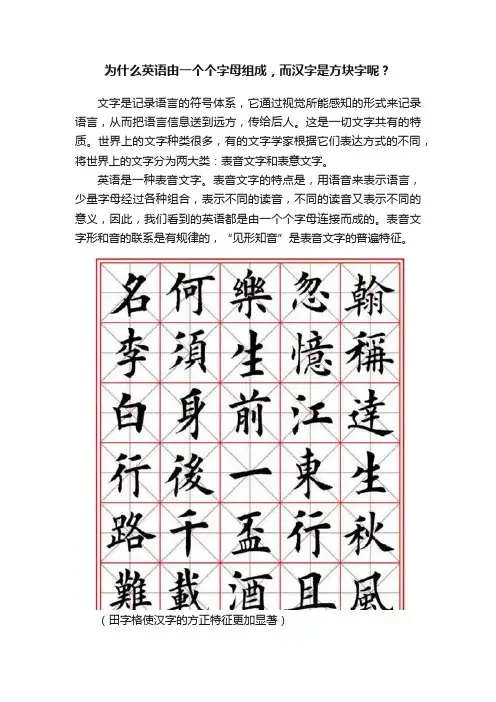 为什么英语由一个个字母组成，而汉字是方块字呢？
文字是记录语言的符号体系，它通过视觉所能感知的形式来记录
语言，从而把语言信息送到远方，传给后人。这是一切文字共有的特
质。世界上的文字种类很多，有的文字学家根据它们表达方式的不同，
将世界上的文字分为两大类：表音文字和表意文字。
英语是一种表音文字。表音文字的特点是，用语音来表示语言，
少量字母经过各种组合，表示不同的读音，不同的读音又表示不同的
意义，因此，我们看到的英语都是由一个个字母连接而成的。表音文
字形和音的联系是有规律的，“见形知音”是表音文字的普遍特征。
翰稱達生秋風
忽憶江東行且
樂生前一盃酒
何須身後千載
名李白行路難
（田字格使汉字的方正特征更加显著）